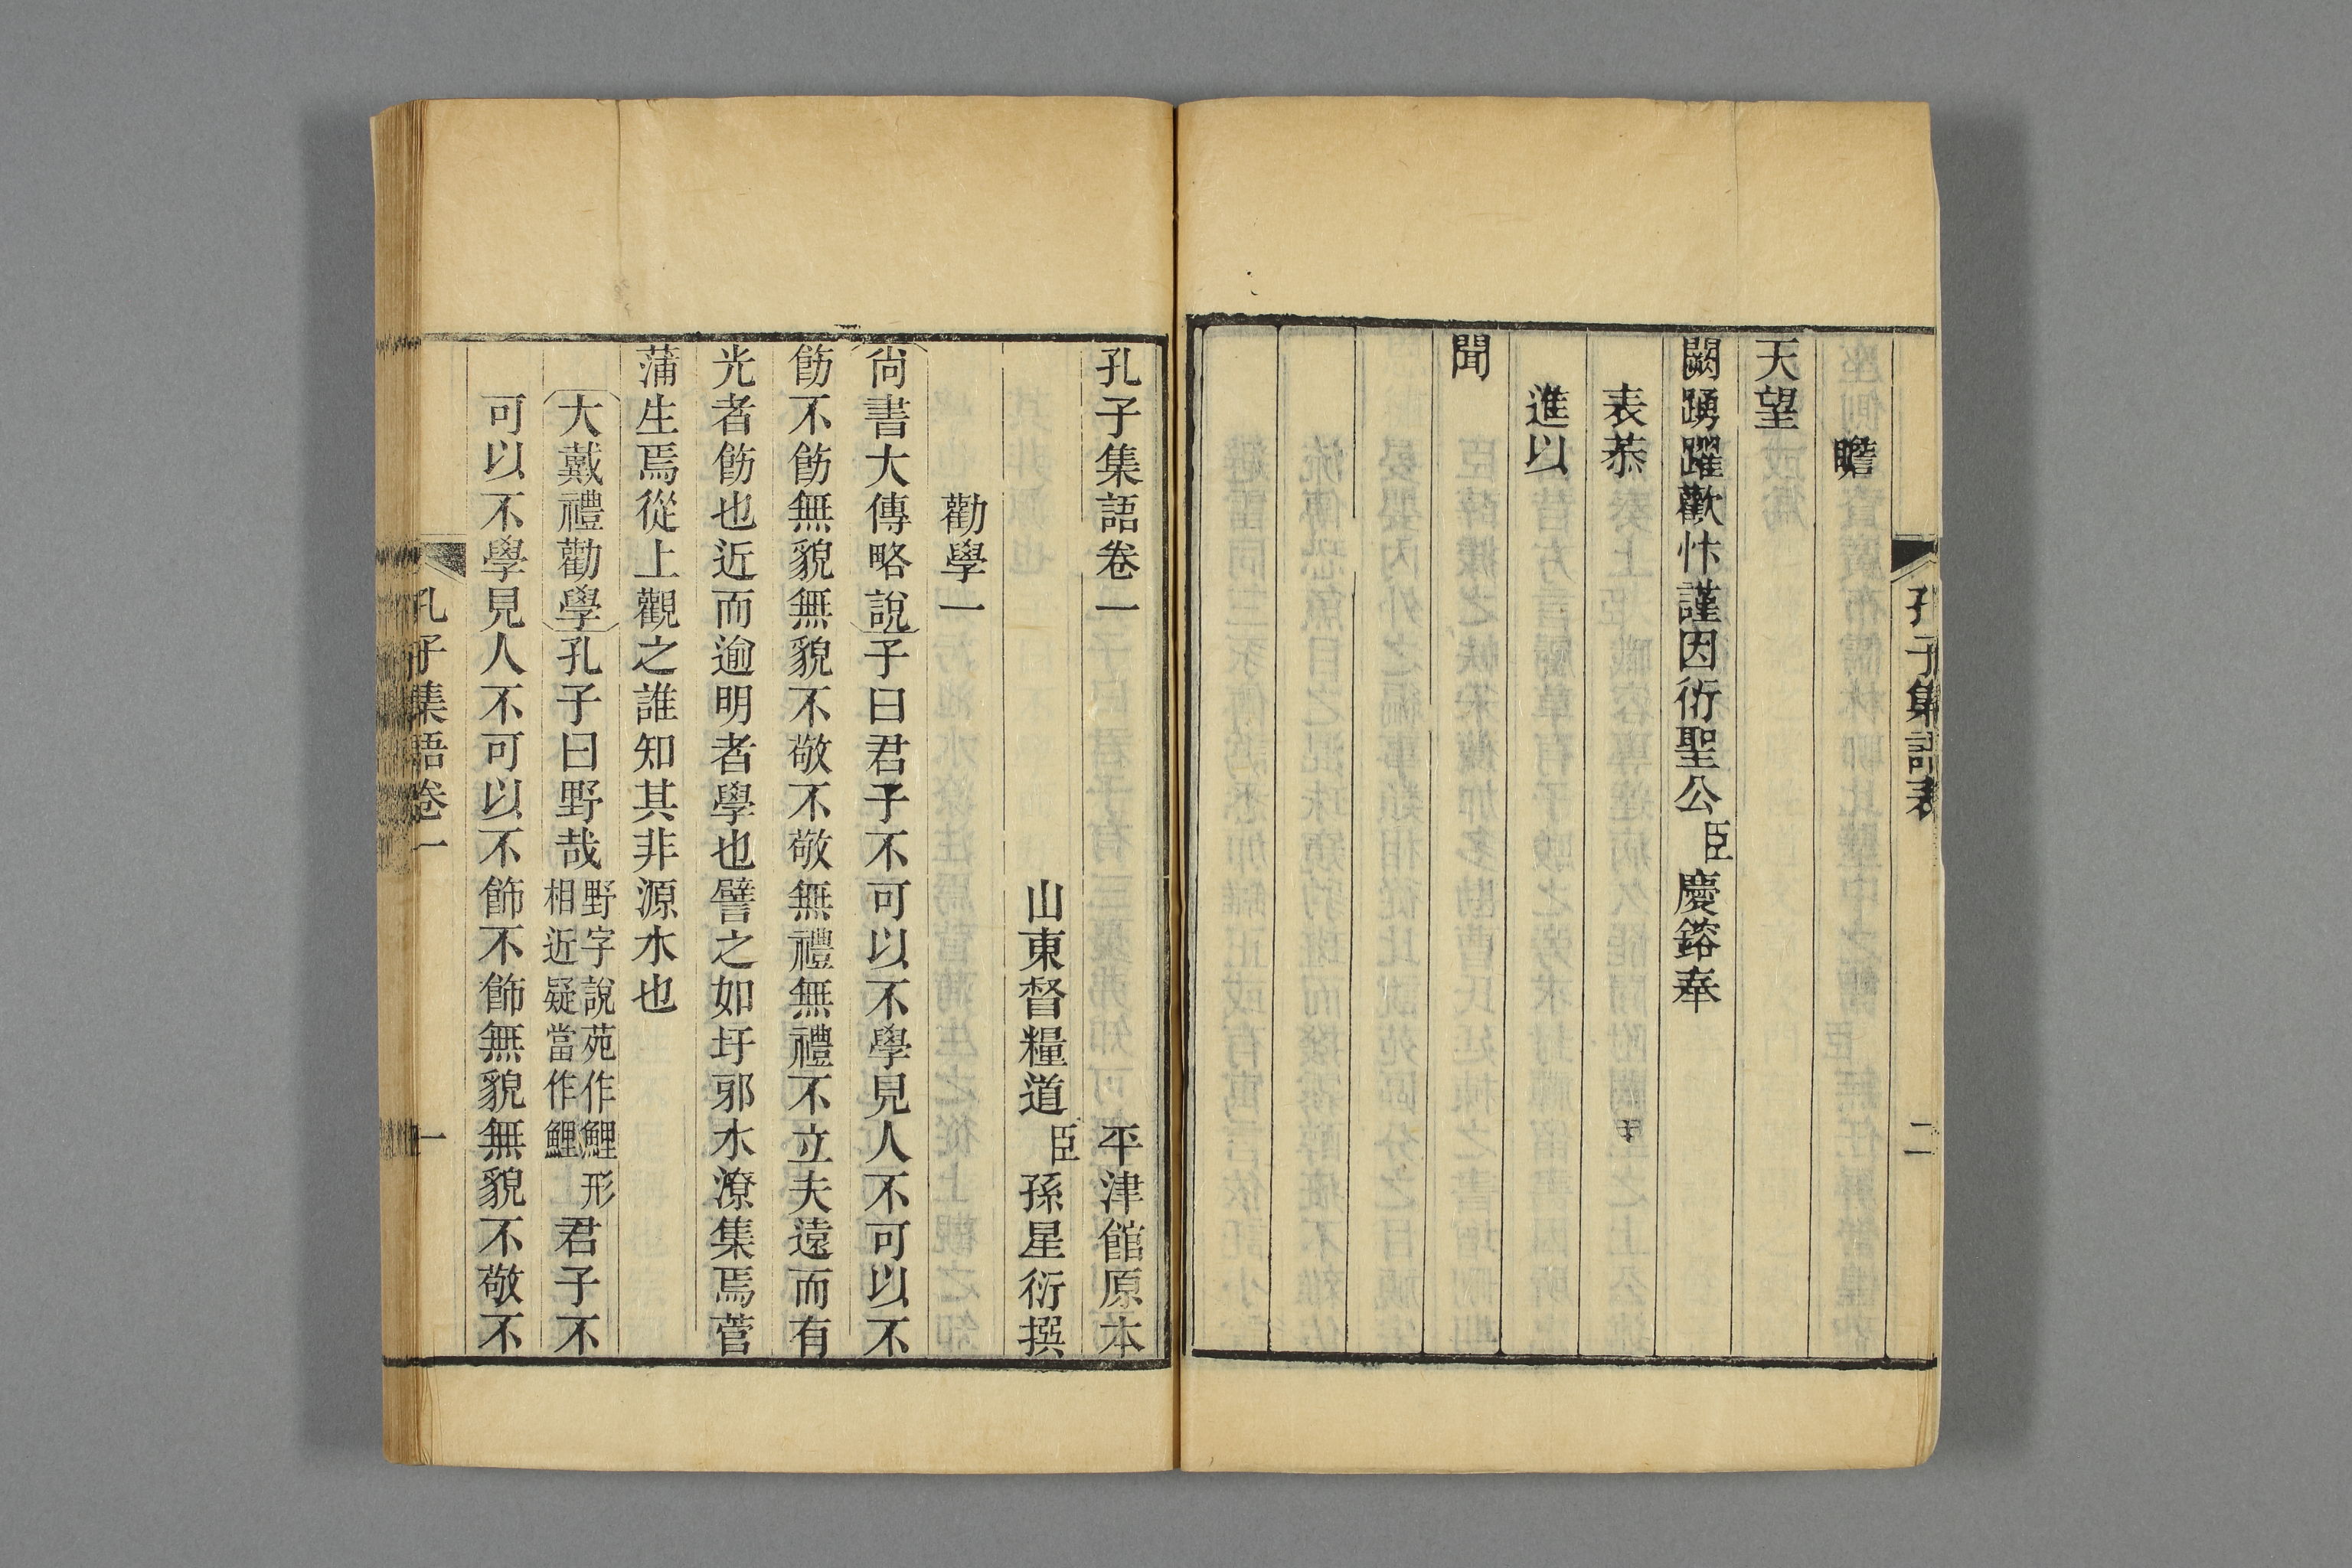 孔子集語表
二
瞻
天望
闕踴躍歡忭謹因衍聖公臣慶鎔奉
表恭
進以
聞
孔子集語卷一
平津館原本
山東督糧道臣孫星衍撰
勸學一
尙書大傳略說子曰君子不可以不學見人不可以不
飾不飾無貌無貌不敬不敬無禮無禮不立夫遠而有
光者飾也近而逾明者學也譬之如圩邪水潦集焉菅
蒲生焉從上觀之誰知其非源水也
大戴禮勸學孔子曰野哉野字說苑作鯉形相近疑當作鯉君子不
可以不學見人不可以不飾不飾無貌無貌不敬不
孔子集語卷一
一